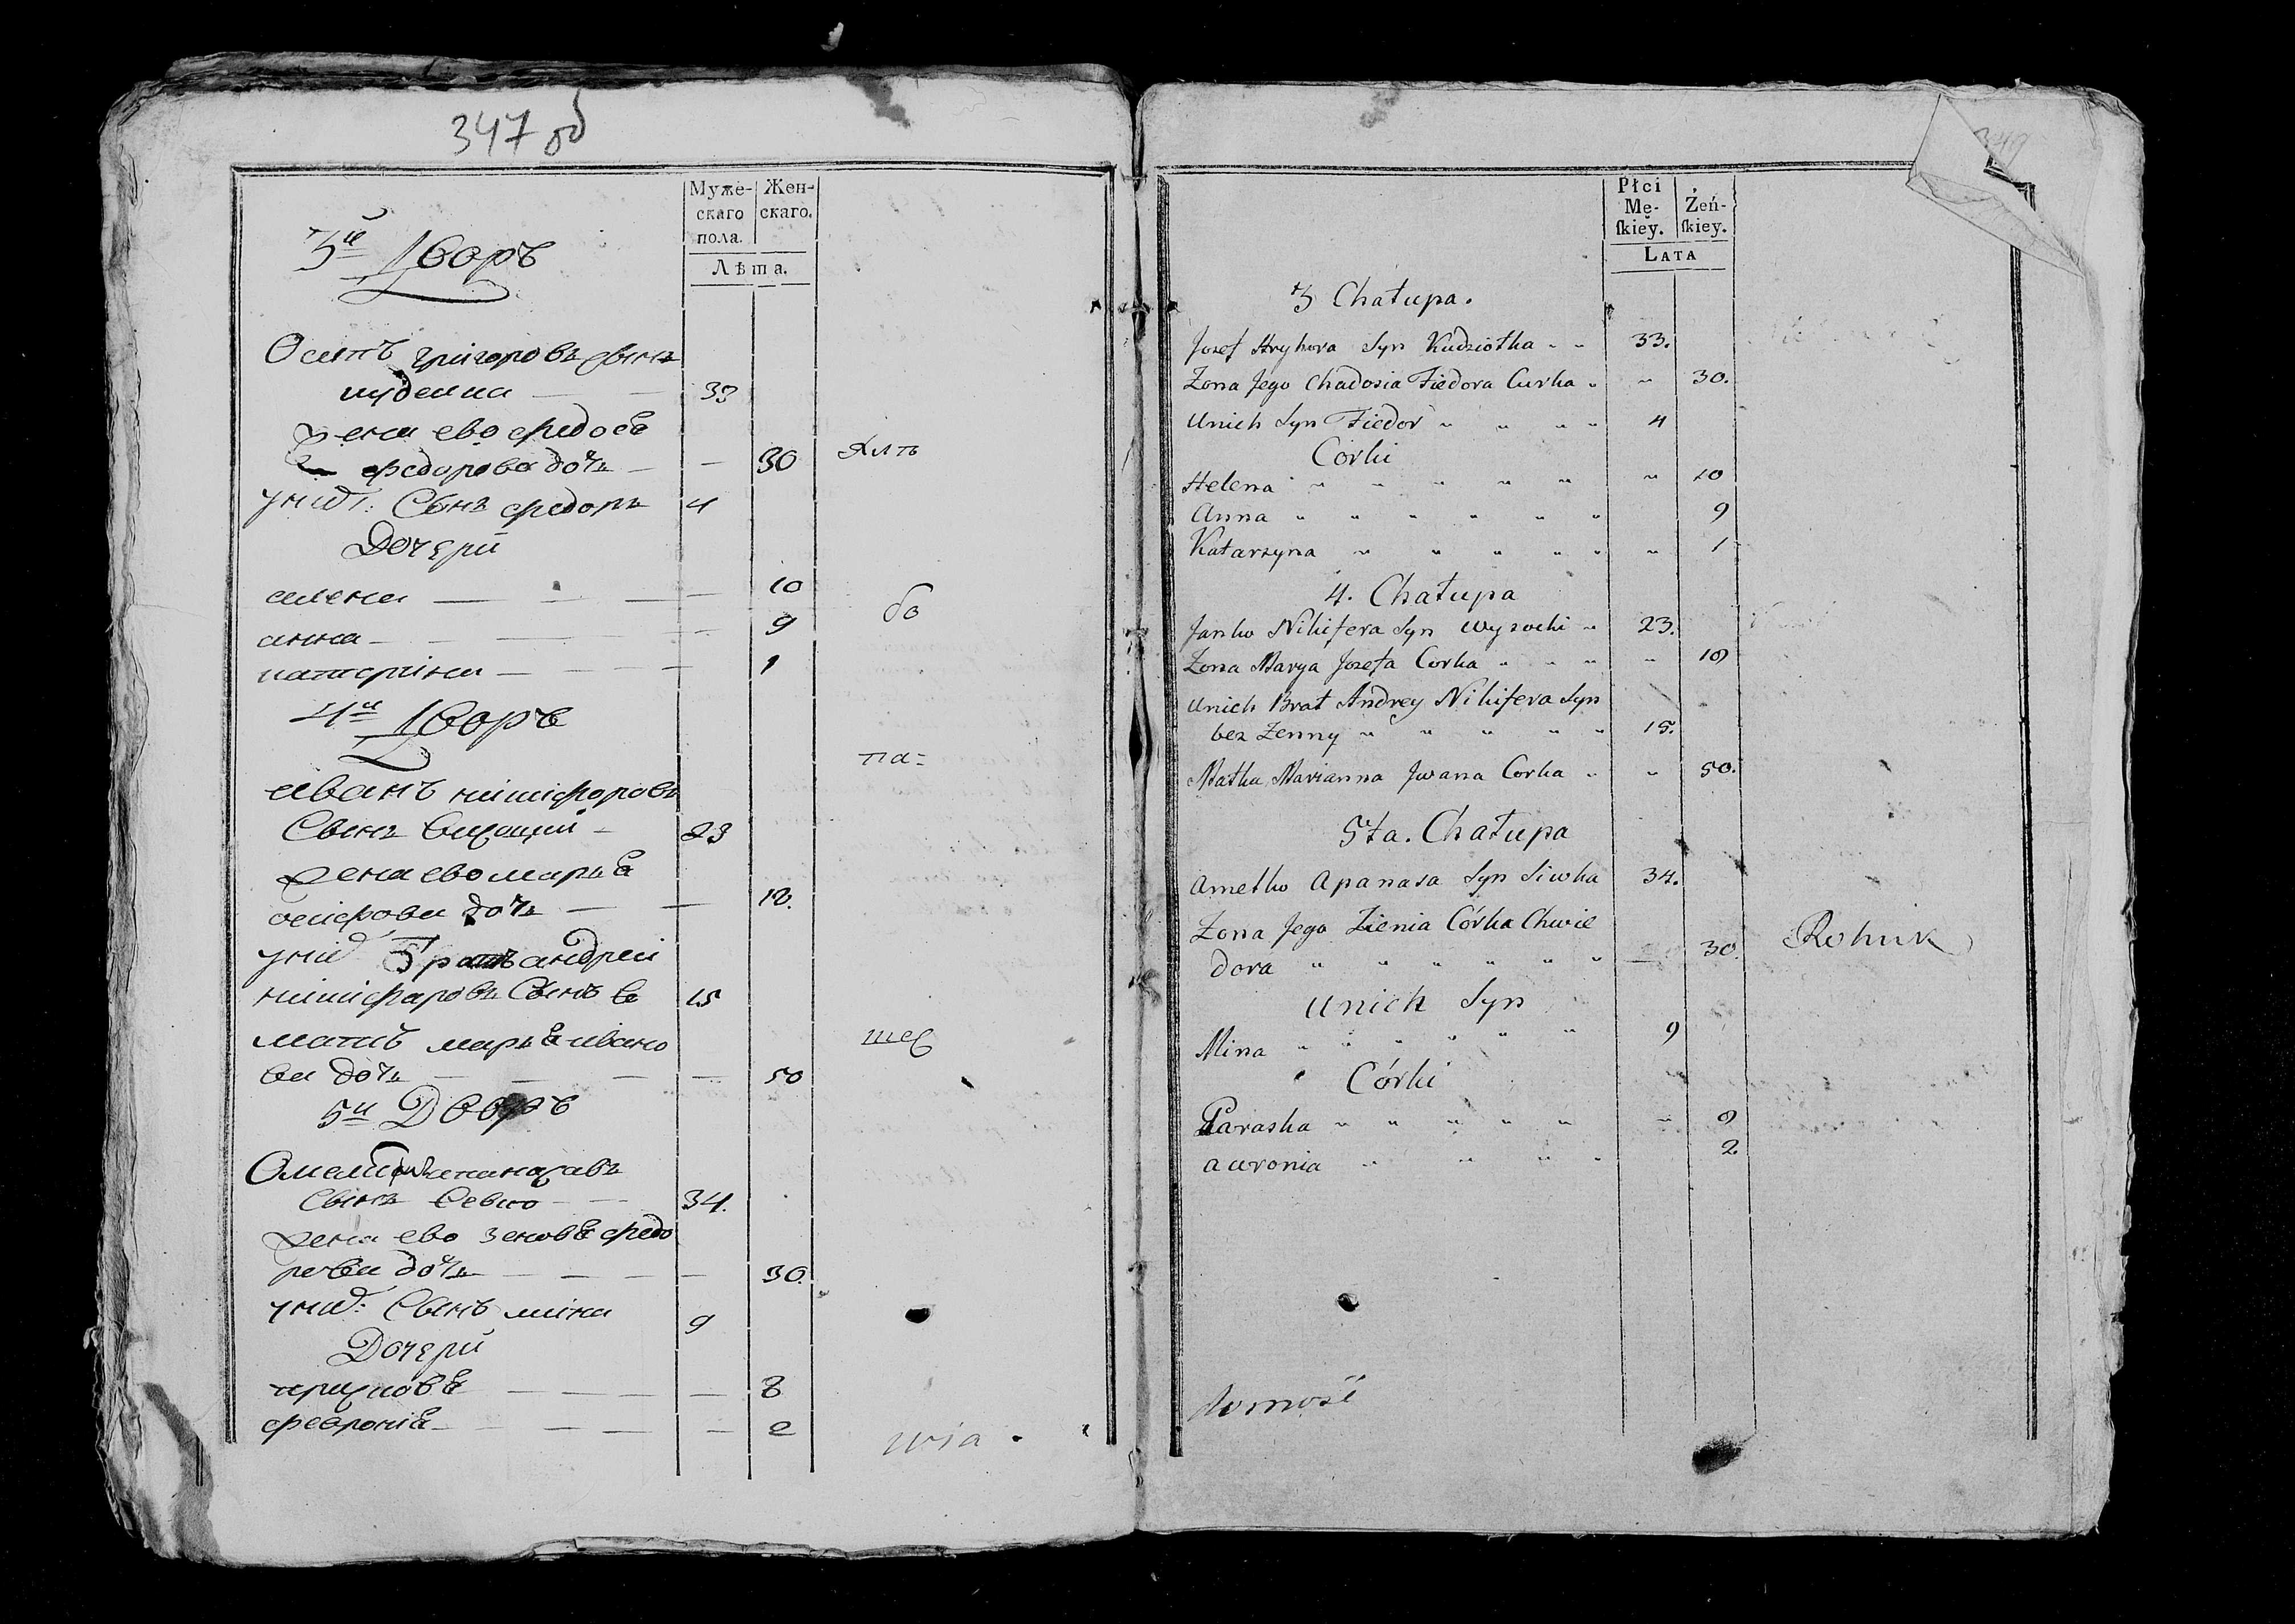 347 об
Муже-
скаго
пола.
Жен-
скаго.
Лѣта.
3й Дворъ
Осипъ григоровъ сынъ
куделка 33
жена ево федосѣ
федорова дочь 30
Ять
у них: Сынъ федоръ 4
Дочери
алена 10
бо
анна 9
катеріна 1
4й Дворъ
па=
иванъ никифоровъ
Сынъ 23
жена ево марья
осифова дочь 18.
у них Братъ андрей
никифаровъ Сынъ 15
мать марья ивано
ва дочь 50
шес
5й Дворъ
Омелько
Сынъ Севко 34.
жена ево зеновѣ федо
рова дочь 30.
у них: Сынъ міна 9
Дочери
8
февроніа 2
wia
Płci
Mę-
ſkiey.
Żeń-
ſkiey.
LATA
3 Chałupa.
Jozef Hryhora Syn Kudziołka 33.
Zona Jego Chadosia Fiedora Curka 30.
Unich Syn Fiedor 4
Corki
Helena 10
Anna 9
Katarzyna 1
4. Chałupa
Janko Nikifera Syn Wysocki 23.
Zona Marya Jozefa Corka 18
Unich Brat Andrey Nikifera Syn
bez Zenny 15.
Matka Marianna Jwana Corka 50.
5ta. Chałupa
Amelko Apanasa Syn Siwka 34.
Zona Jego Zienia Córka Chwie
dora 30.
Rolnik
Unich Syn
Mina 9
Córki
Paraska 8
Auronia 2
domość